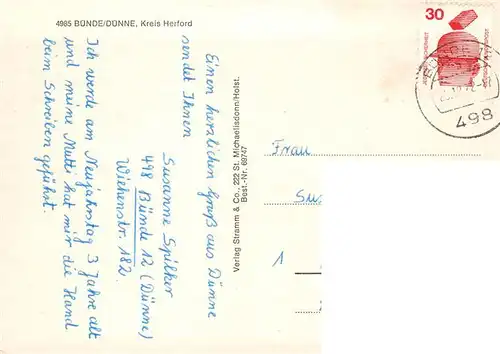 4985 BÜNDE/DÜNNE, Kreis Herford
Einen herzlichen Gruß aus Dünne
sendet Ihnen
Susanne Spilker
498 Bünde 12 (Dünne)
Wiehenstr. 182.
Ich werde am Neujahrstag 3 Jahre alt
und meine Mutti hat mir die Hand
beim Schreiben geführt.
Verlag Stramm & Co., 222 St. Michaelisdonn/Holst.
Best.-Nr. 69747
30
498
Frau
Su
1